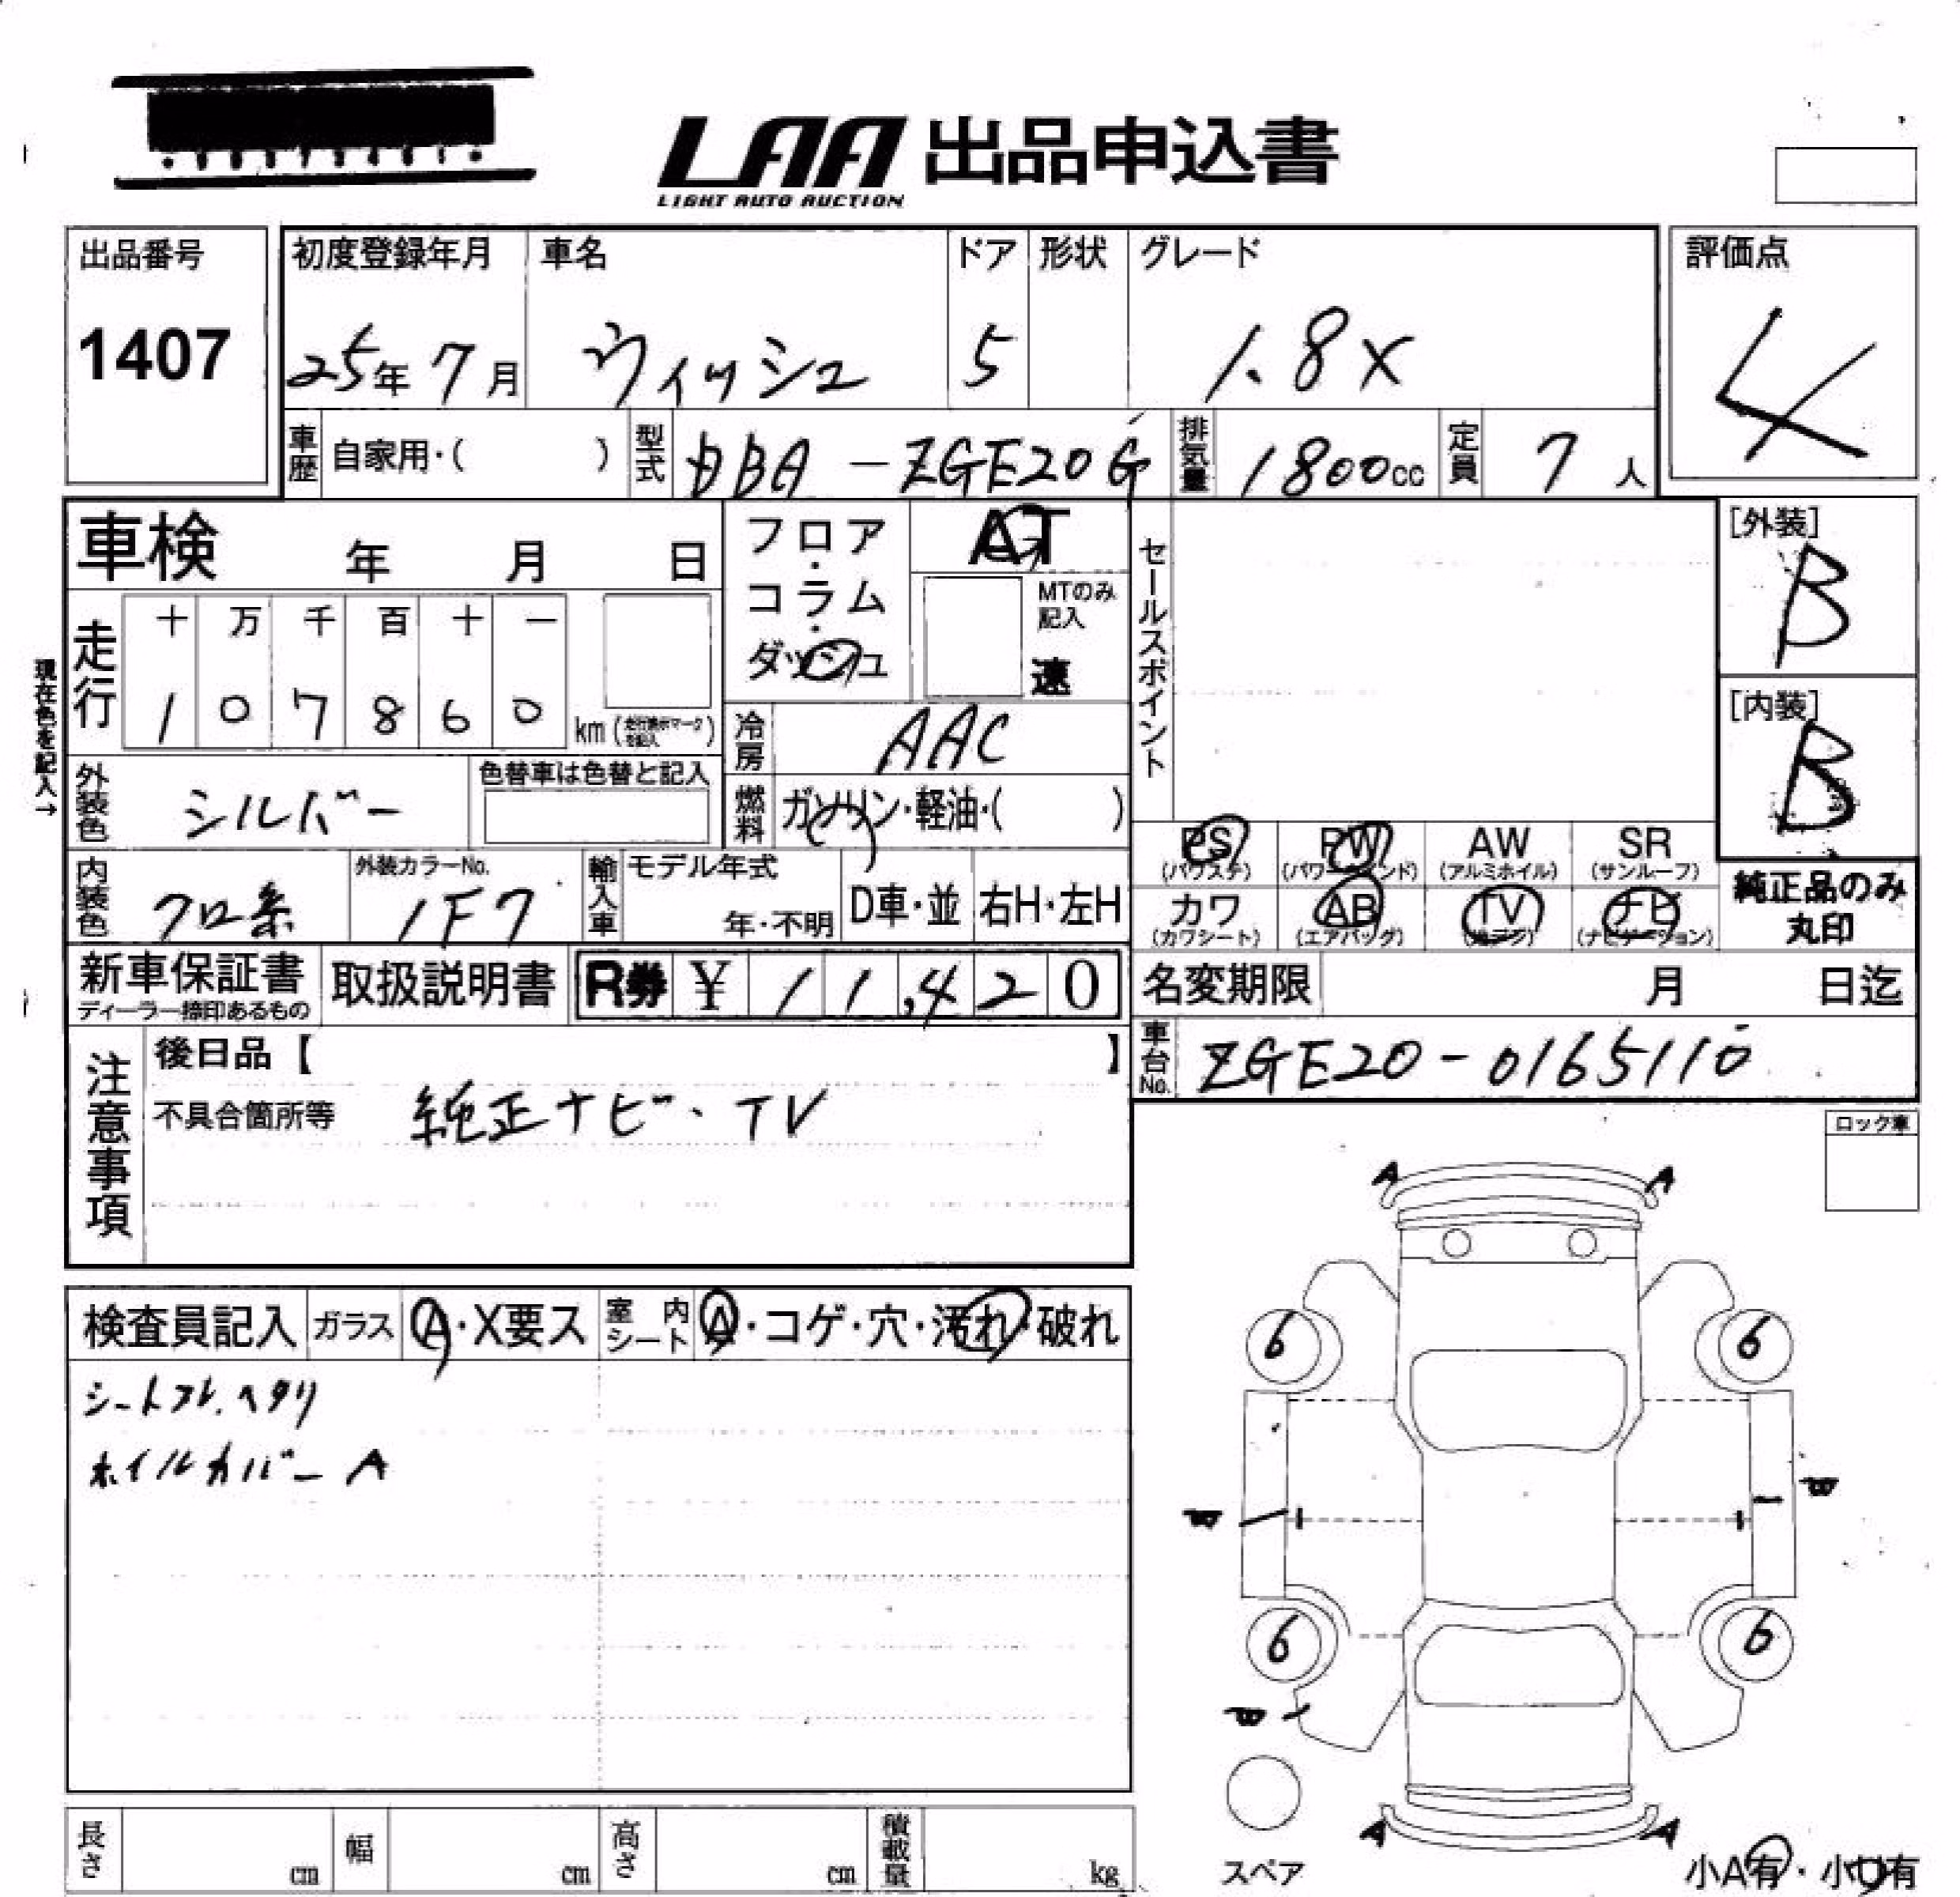 LAA 出品申込書
LIGHT AUTO AUCTION
出品番号
1407
初度登録年月
25年 7月
車名
ウィッシュ
ドア
5
形状
グレード
1.8X
評価点
4
車歴 自家用・( )
型式 DBA-ZGE20G
排気量 1800cc
定員 7人
車検 年 月 日
フロア・コラム・ダッシュ
AT
MTのみ記入
速
セールスポイント
[外装]
B
[内装]
B
現在色を記入→
走行
十 万 千 百 十 一
1 0 7 8 6 0 km (走行表示マークを記入)
冷房 AAC
外装色 シルバー
色替車は色替と記入
燃料 ガソリン・軽油・( )
内装色 クロ系
外装カラーNo.
1F7
輸入車 モデル年式
年・不明
D車・並
右H・左H
PS (パワステ)
PW (パワーウィンド)
AW (アルミホイル)
SR (サンルーフ)
カワ (カワシート)
AB (エアバッグ)
TV
ナビ (ナビゲーション)
純正品のみ
丸印
新車保証書
ディーラー捺印あるもの
取扱説明書
R券 ¥ 11,420
名変期限 月 日迄
車台No. ZGE20-0165110
注意事項
後日品【 】
不具合箇所等 純正ナビ、TV
ロック車
検査員記入 ガラス A・X要ス
室内シート A・コゲ・穴・汚れ・破れ
シートスレ、ヘタリ
ホイルカバーA
A A
6 6
6 6
A A
スペア
小A有・小U有
長さ cm
幅 cm
高さ cm
積載量 kg